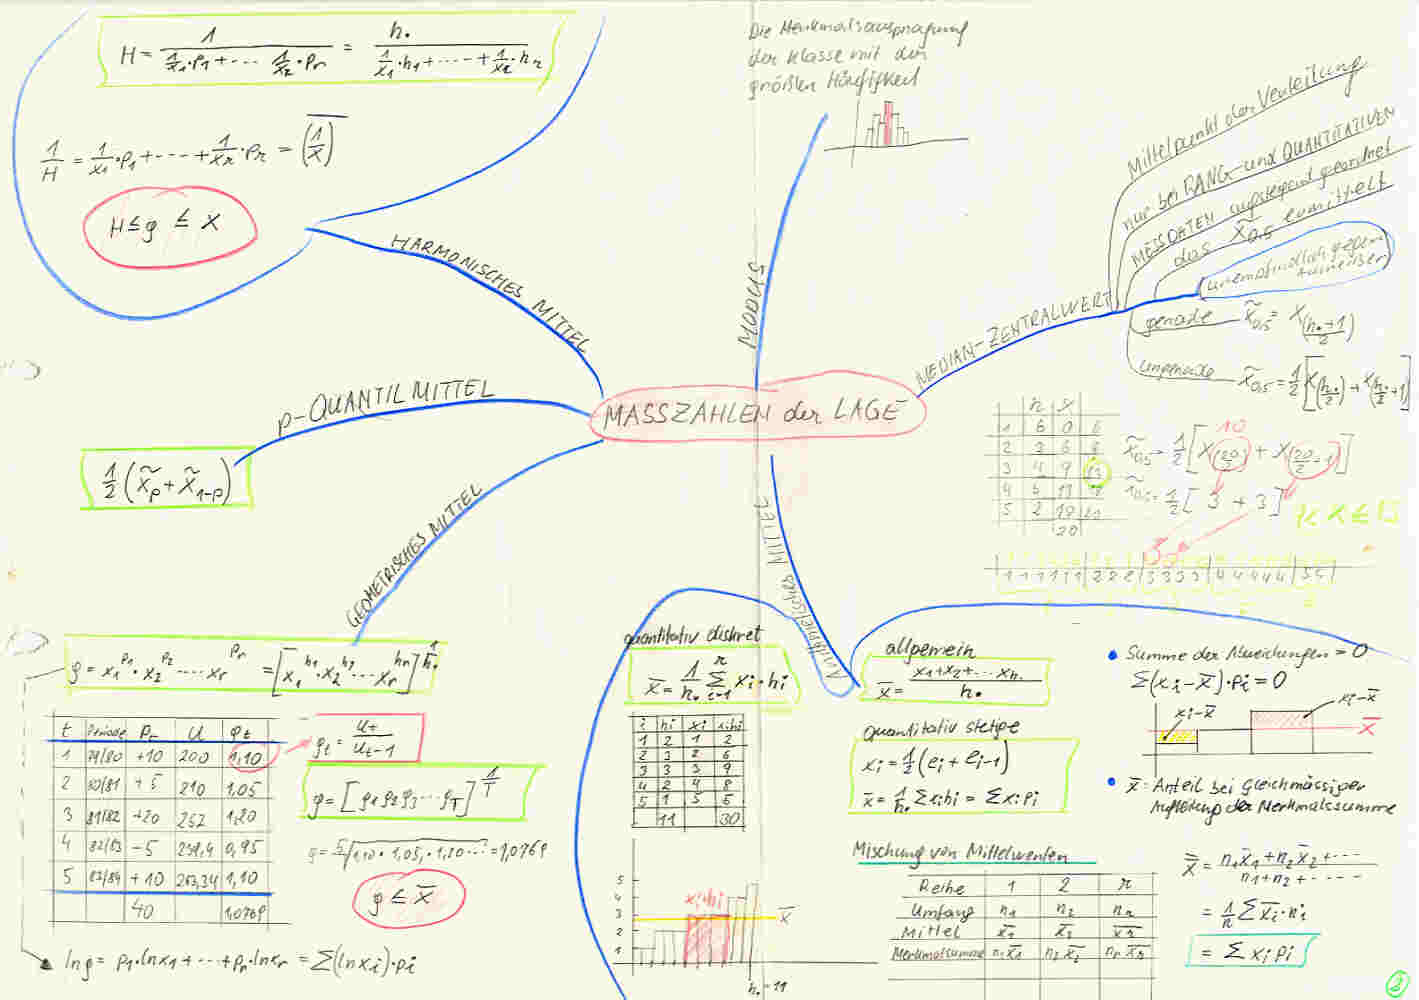 MASSZAHLEN der LAGE
HARMONISCHES MITTEL
H = 1 / (1/x₁·p₁ + ... 1/xr·pr) = h. / (1/x₁·h₁ + ···· + 1/xr·hr)
1/H = 1/x₁·p₁ + ---- + 1/xr·pr = (1/x)
H ≤ g ≤ x
p-QUANTILMITTEL
1/2 (x̃p + x̃1-p)
GEOMETRISCHES MITTEL
g = x₁^p₁ · x₂^p₂ ···· xr^pr = [x₁^h₁ · x₂^h₂ ···· xr^hr]^1/h.
t Periode Pr U ϱt
1 79/80 +10 200 1,10
2 80/81 +5 210 1,05
3 81/82 +20 252 1,20
4 82/83 -5 239,4 0,95
5 83/84 +10 263,34 1,10
40 1,0769
ϱt = ut / ut-1
g = [ϱ1 ϱ2 ϱ3 ... ϱT]^1/T
g = 5√1,10 · 1,05 · 1,20 ··· = 1,0769
g ≤ x̄
ln g = p₁·ln x₁ + ··· + pr·ln xr = Σ(ln xi)·pi
MODUS
Die Merkmalsausprägung
der Klasse mit der
größten Häufigkeit
MEDIAN-ZENTRALWERT
Mittelpunkt der Verteilung
nur bei RANG- und QUANTITATIVEN
MESSDATEN aufsteigend geordnet
das x̃0,5 ermittelt
unempfindlich gegen
Ausreißer
gerade x̃0,5 = x(h.+1)/2
ungerade x̃0,5 = 1/2 [x(h./2) + x(h./2+1)]
h x
1 6 0 6
2 3 6 9
3 4 9 13
4 5 13 18
5 2 18 20
20
10
x̃0,5 = 1/2 [x(20/2) + x(20/2+1)]
x̃0,5 = 1/2 [3 + 3]
3
1 1 1 1 1 1 2 2 2 3 3 3 3 4 4 4 4 4 5 5
Arithmetisches MITTEL
quantitativ diskret
x̄ = 1/h. Σ xi·hi
i hi xi xihi
1 2 1 2
2 3 2 6
3 3 3 9
4 2 4 8
5 1 5 5
11 30
5
4
3
2
1
xi·hi
x̄
h. = 11
allgemein
x̄ = x1+x2+...xh. / h.
Quantitativ stetige
xi = 1/2 (ei + ei-1)
x̄ = 1/h. Σ xihi = Σ xipi
Summe der Abweichungen = 0
Σ(xi-x̄)·pi = 0
xi-x̄
xi-x̄
x̄
x̄ = Anteil bei gleichmässiger
Aufteilung der Merkmalssumme
Mischung von Mittelwerten
Reihe 1 2 r
Umfang n1 n2 nr
Mittel x̄1 x̄2 x̄r
Merkmalsumme n1x̄1 n2x̄2 nrx̄r
x̿ = n1x̄1 + n2x̄2 + ··· / n1+n2+ ····
= 1/n Σ x̄i·ni
= Σ xipi
2